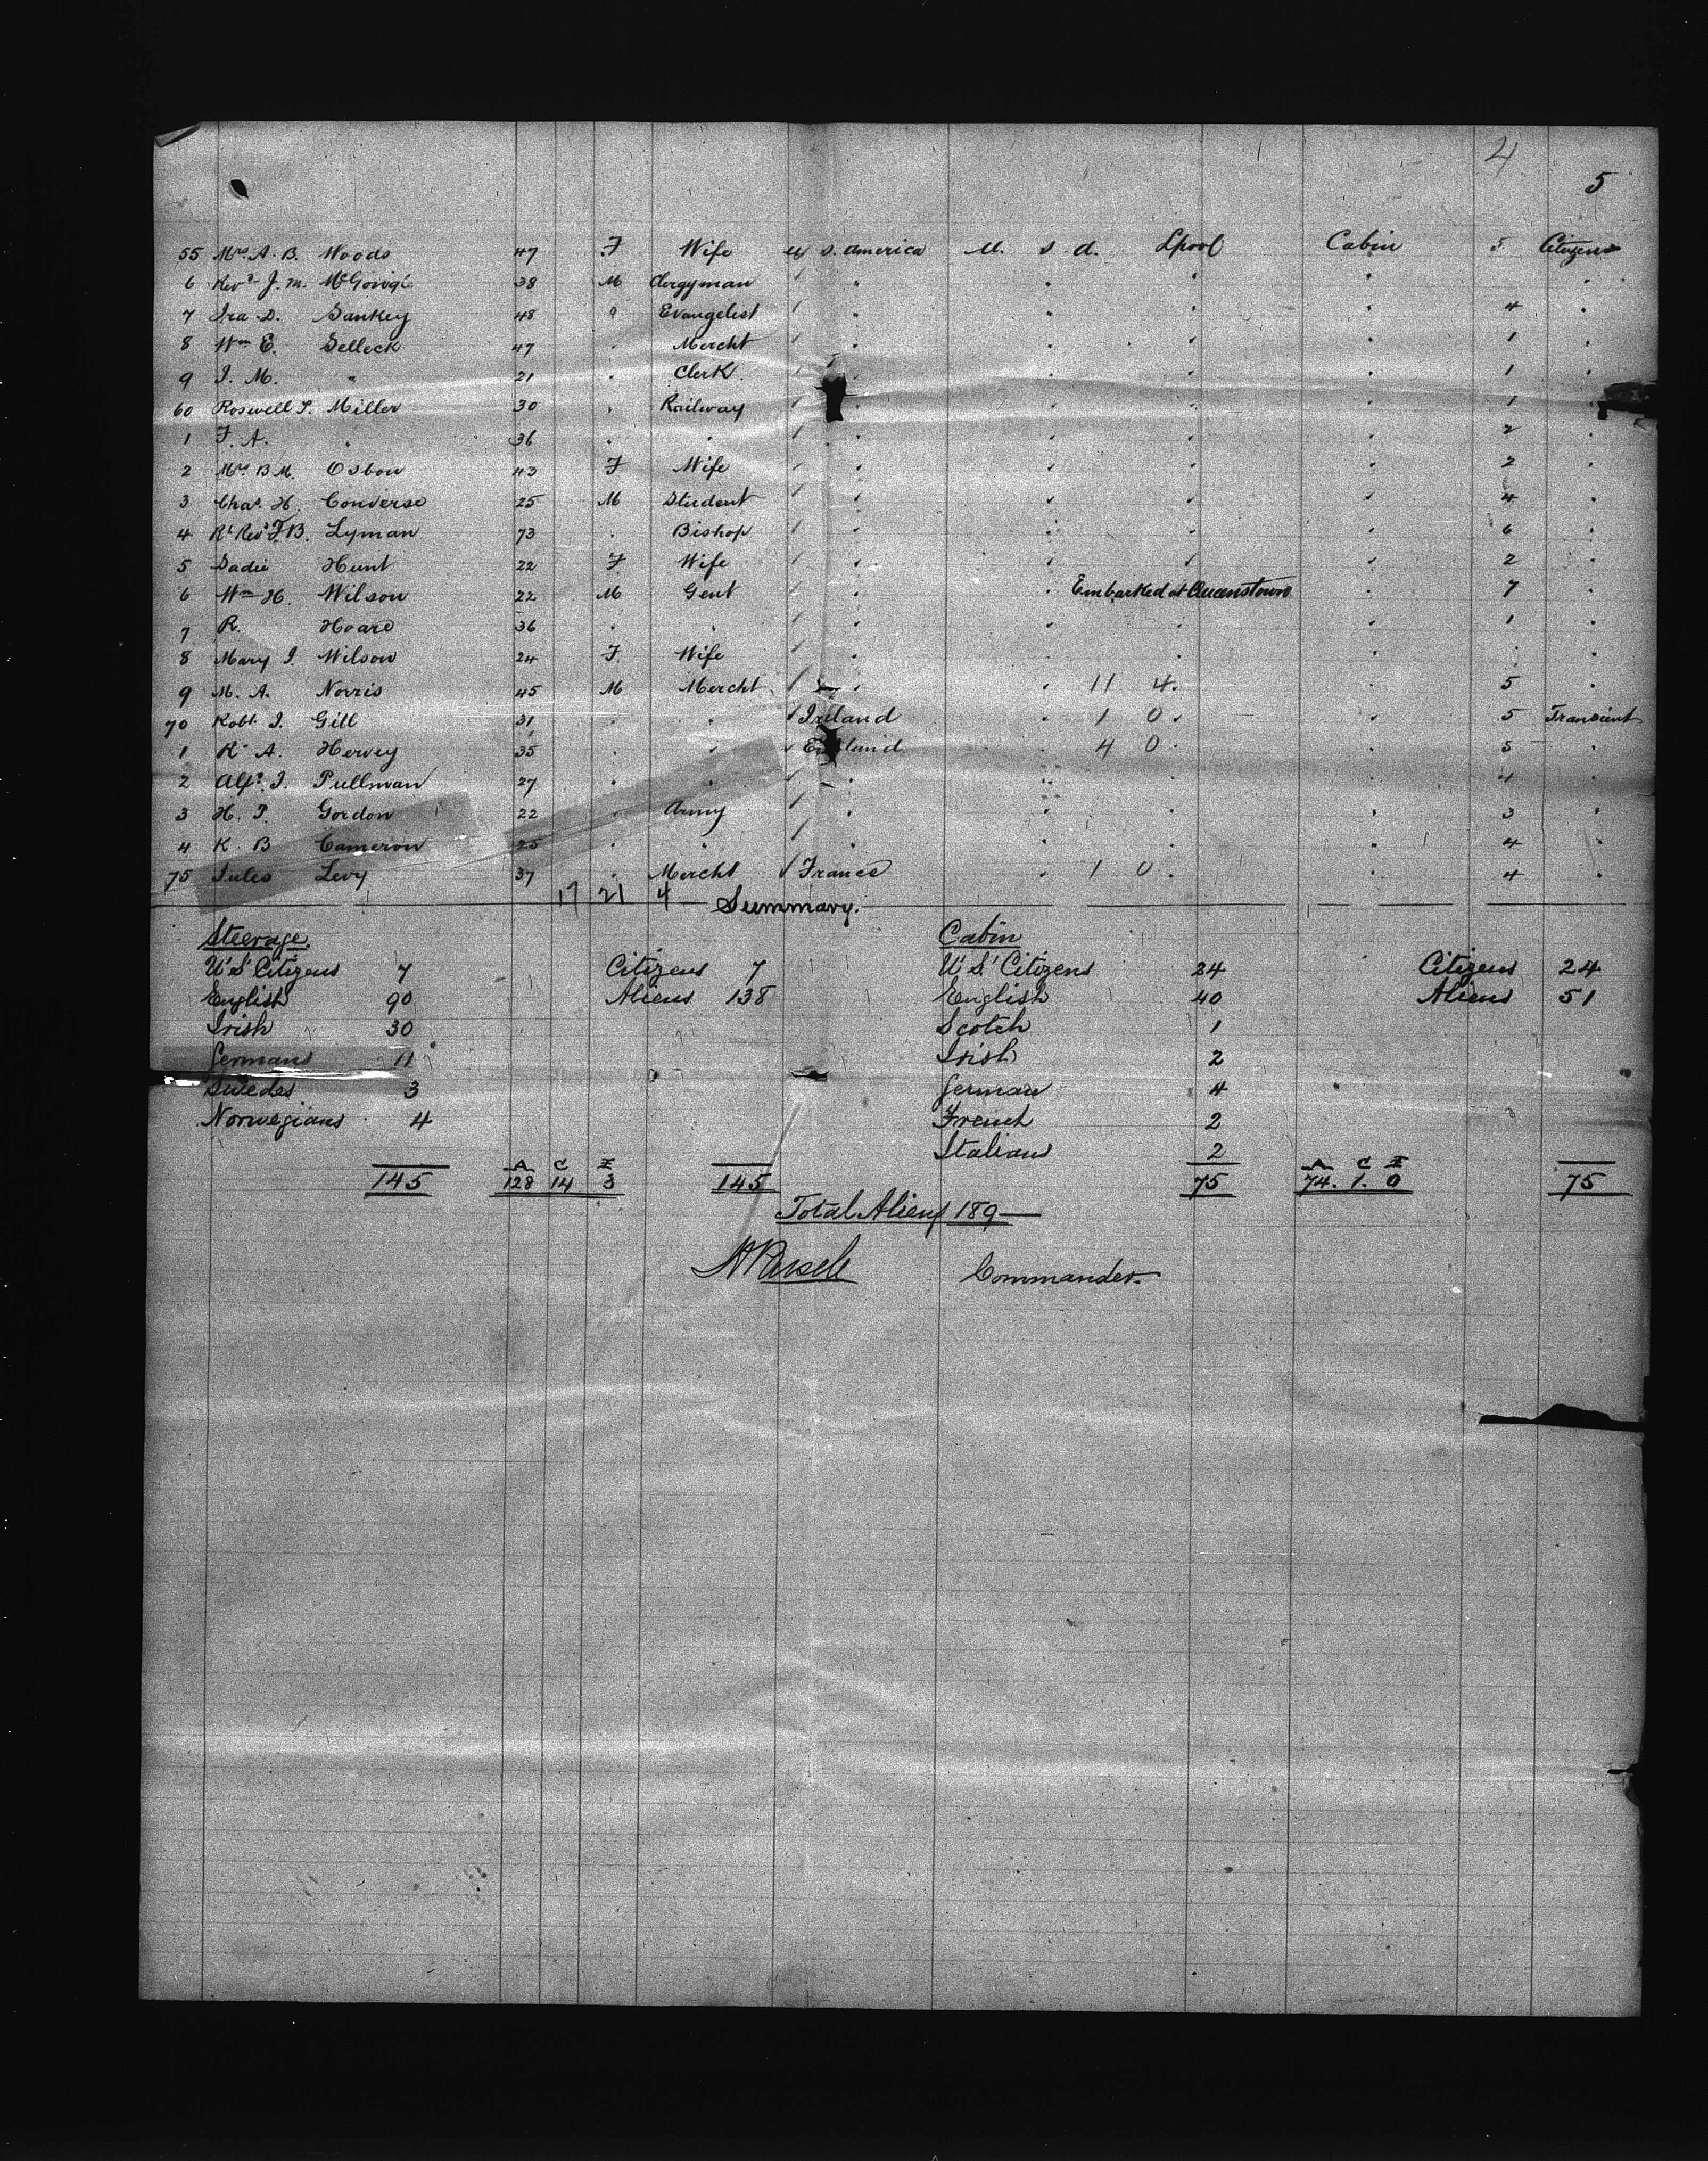 4
5
55 Mrs A. B. Woods 47 F Wife U S. America U. S. A. Lpool Cabin 5 Citizen
6 Revd J. M. 38 M Clergyman
7 Ira D. Sankey 48 " Evangelist 4
8 Wm E. Selleck 47 Mercht 1
9 I. M. " 21 Clerk. 1
60 Roswell S. Miller 30 Railway 1
1 F. A. " 36 " 2
2 Mrs B M. Osbon 43 F Wife 2
3 Chas. H. Converse 25 M Student 4
4 Rt Revd F. B. Lyman 73 Bishop 6
5 Sadie Hunt 22 F Wife 2
6 Wm H. Wilson 22 M Gent Embarked at Queenstown 7
7 R. Hoare 36 " 1
8 Mary I. Wilson 24 F. Wife
9 M. A. Norris 45 M Mercht 11 4. 5
70 Robt. I. Gill 31 " Ireland 1 0. 5 Transient
1 R. A. Hervey 35 " England 4 0. 5
2 Alfd. I. Pullman 27 " 4
3 H. P. Gordon 22 Army 3
4 K. B Cameron 25 " 4
75 Jules Levy 37 Mercht France 1 0. 4
17 21 4 Summary.
Steerage. Cabin
U.S. Citizens 7 Citizens 7 U.S. Citizens 24 Citizens 24
English 90 Aliens 138 English 40 Aliens 51
Irish 30 Scotch 1
Germans 11 Irish 2
Swedes 3 German 4
Norwegians 4 French 2
Italians 2
A C I A C I
145 128 14 3 145 75 74. 1. 0 75
Total Aliens 189
Commander.